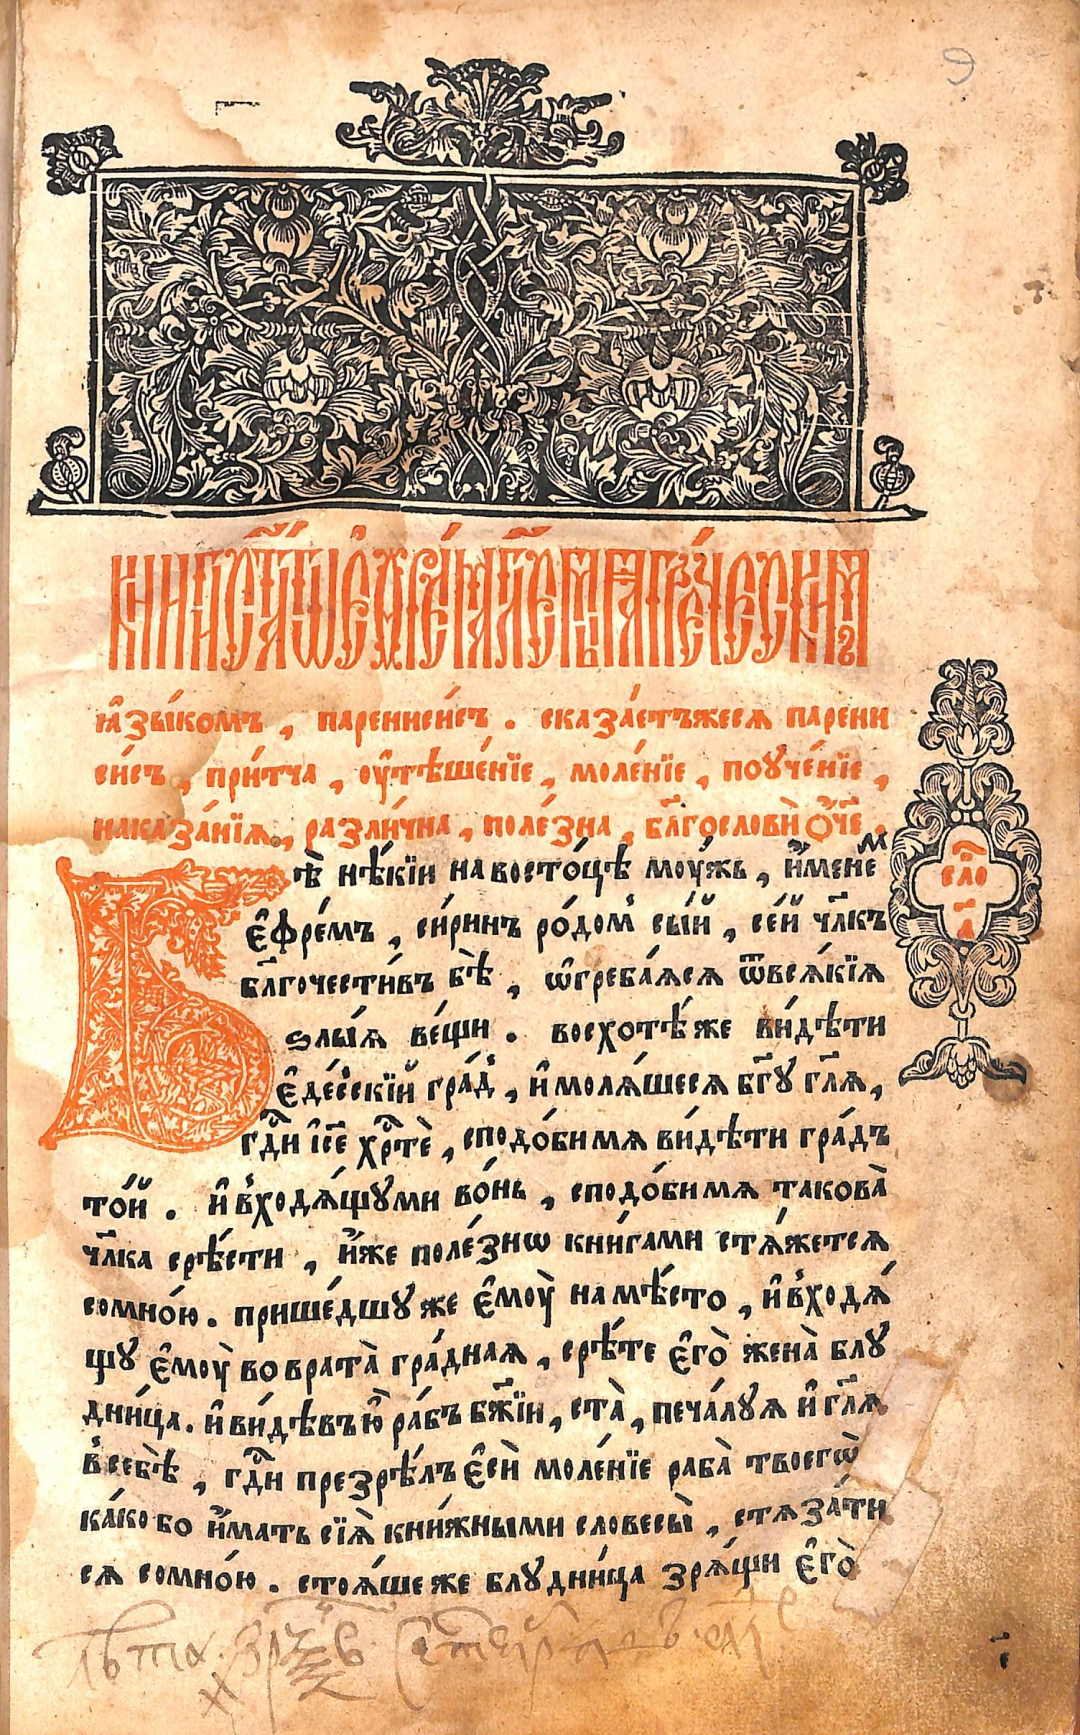 КНИГА СТ҃А́ГѠ Е҆ФРЕ́МА, ГЛЕ́МАѦ ГРЕ́ЧЕСКИМЪ
ꙗ҆зы́комъ, паренисе́исъ. сказа́етъжесѧ парени
се́исъ, при́тча, ᲂу҆тѣше́нїе, моле́нїе, поуче́нїе,
наказа́нїѧ, разли́чна, поле́зна, бл҃гословѝ ѻ҆́ч҃е.
Бѣ̀ нѣ́кїи на восто́цѣ мꙋ́жь, и҆́менемъ
е҆фре́мъ, си́ринъ ро́домъ сы́й, се́й чл҃къ
бл҃гочести́въ бѣ̀, ѡ҆греба́ѧсѧ ѿвсѧ́кїѧ
ѕлы́ѧ ве́щи. восхотѣ́же ви́дѣти
е҆де́сскїй гра́д, и҆молѧ́шесѧ бг҃ꙋ гл҃ѧ,
гдⷭ҇и і҆с҃е хрⷭ҇тѐ, сподо́бимѧ ви́дѣти гра́дъ
то́й. и҆ входѧ́щꙋми во́нь, сподо́бимѧ такова̀
чл҃ка срѣ́сти, и҆́же поле́знѡ кни́гами стѧ́жетсѧ
сомно́ю. прише́дшꙋже е҆моу̀ намѣ́сто, и҆ входѧ́
щꙋ е҆моу̀ во врата̀ гра́днаѧ, срѣ́те е҆го̀ жена̀ блꙋ
дни́ца. и҆ви́дѣвъ ю҆̀ ра́бъ бж҃їи, ста̀, печа́лꙋѧ и҆ гл҃ѧ
в себѣ̀, гдⷭ҇и презрѣ́лъ е҆сѝ моле́нїе раба̀ твоегѡ̀
ка́кобо и҆́мать сїѧ̀ кни́жными словесы̀, стѧза́ти
сѧ сомно́ю. стоѧ́шеже блꙋдни́ца зрѧ́щи е҆го̀
сло
а҃